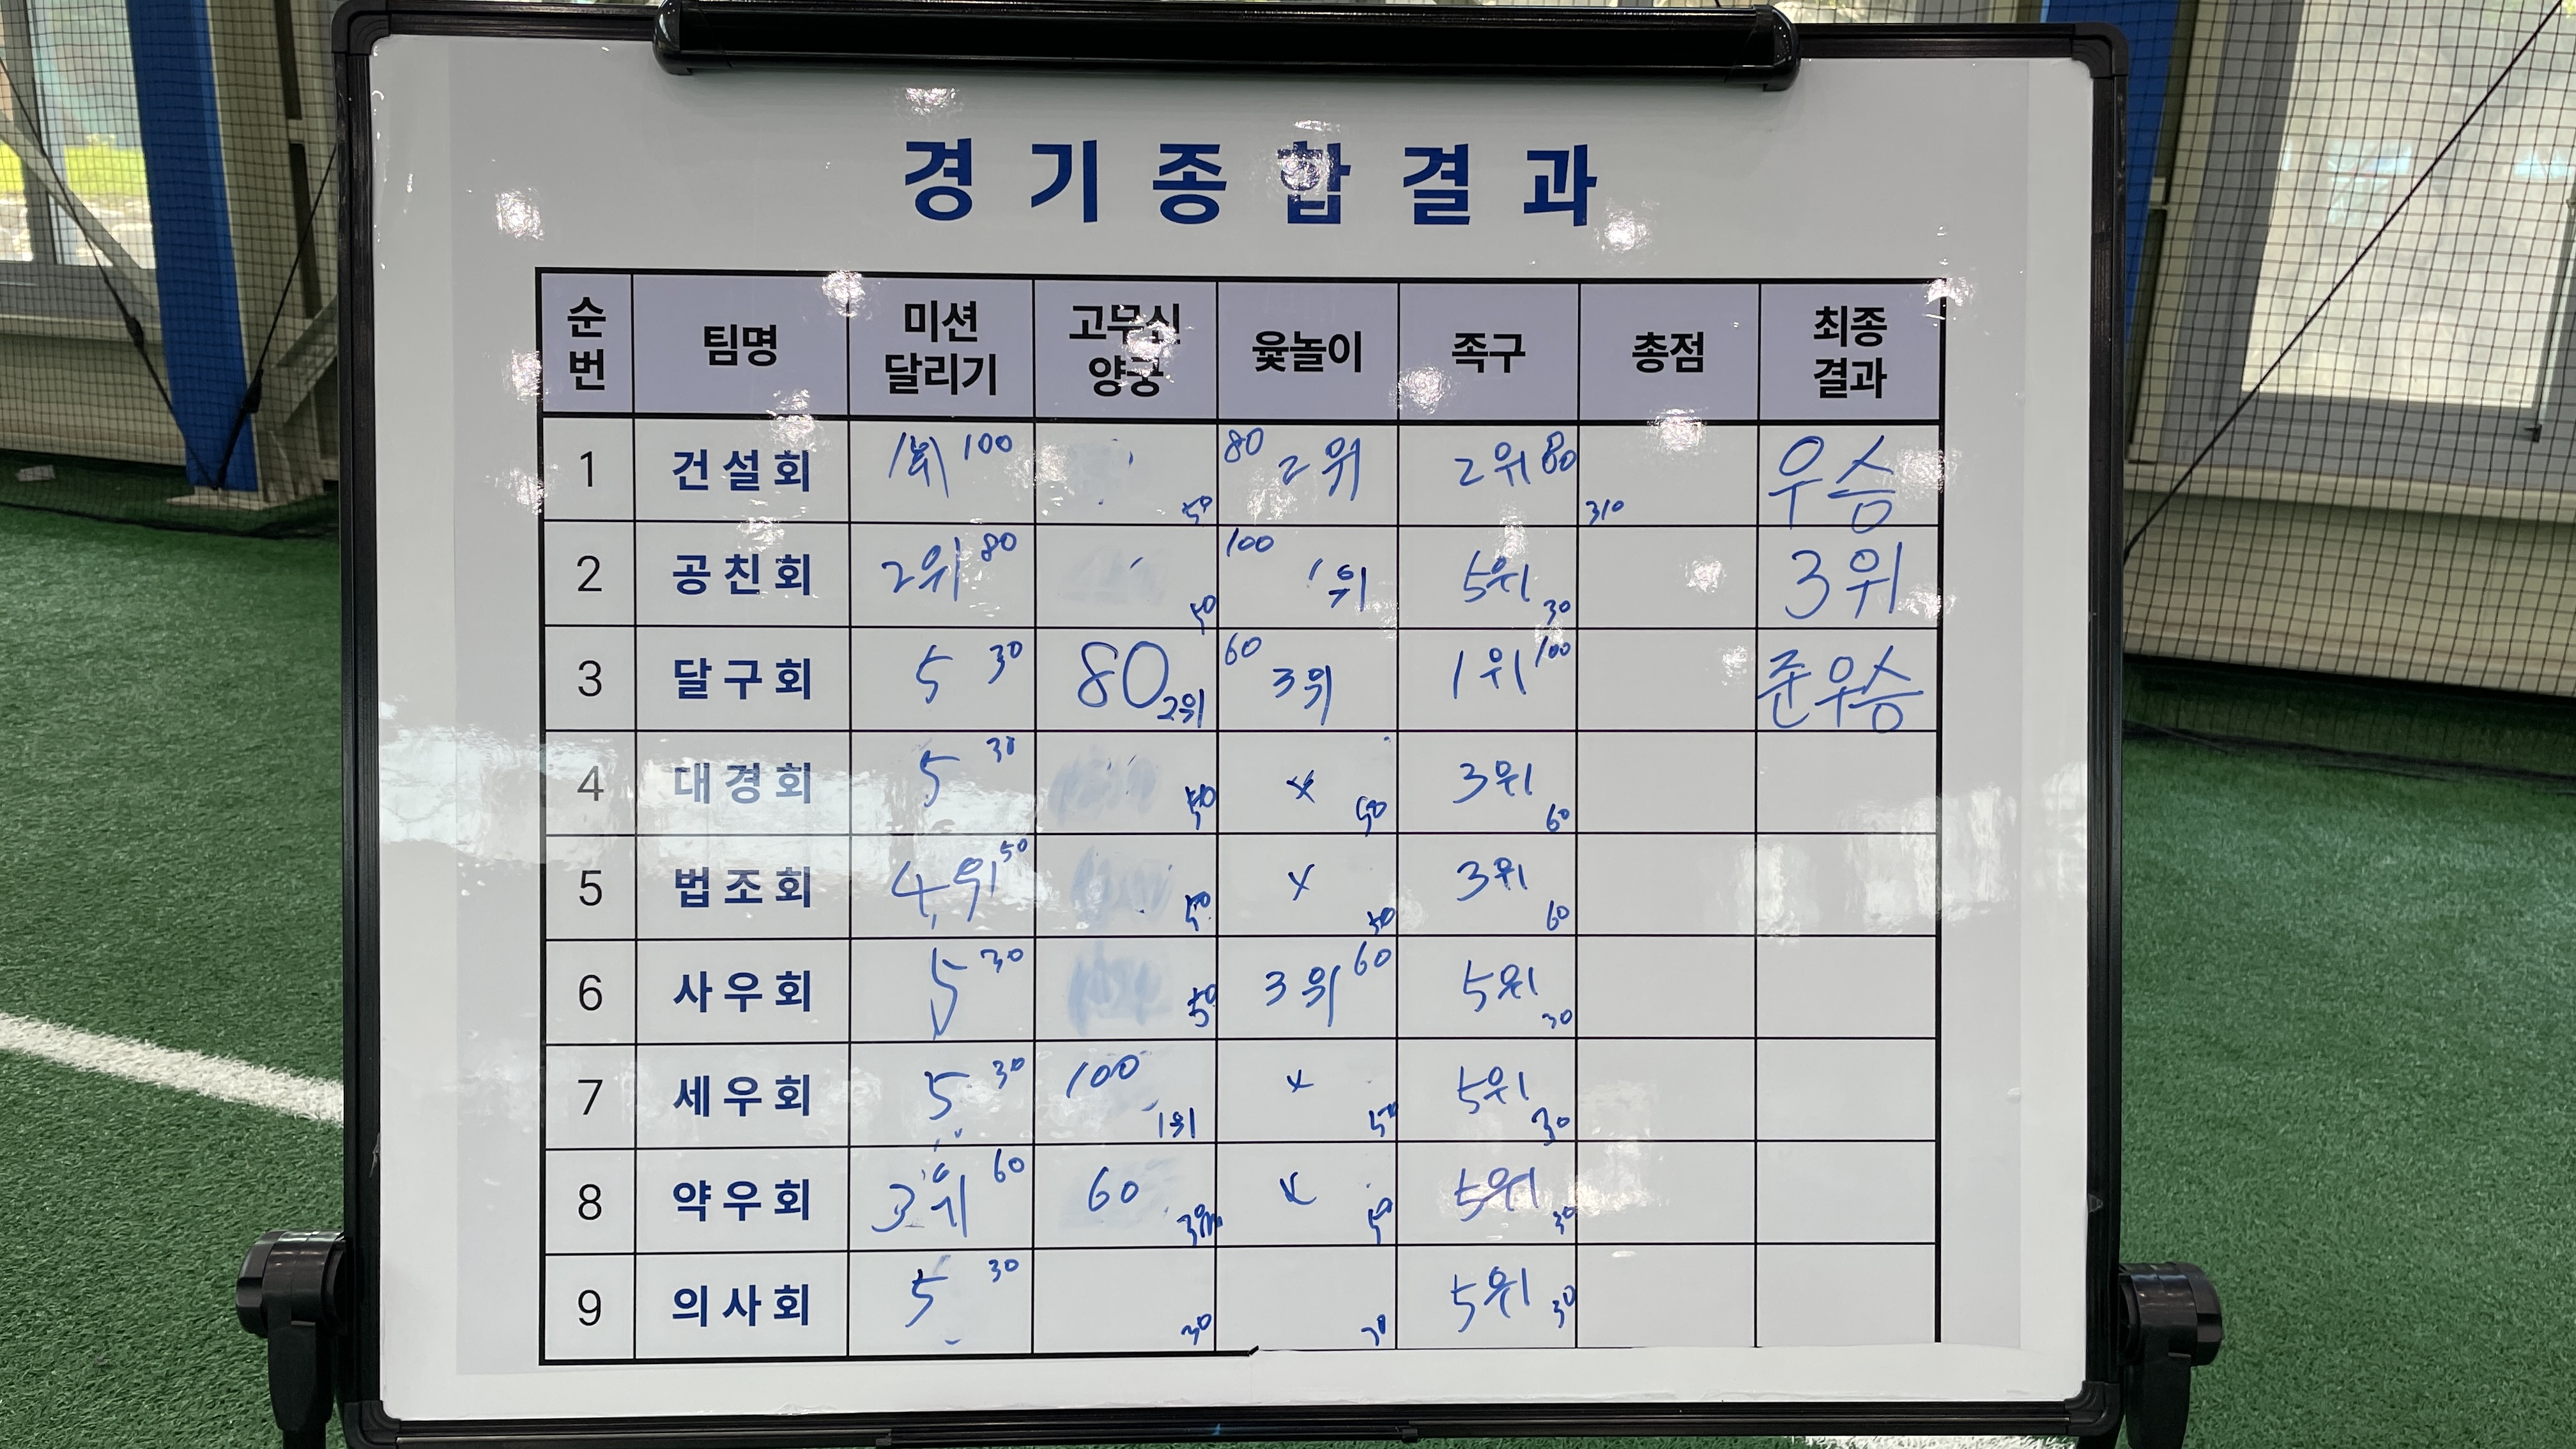 경기종합결과
순번 팀명 미션달리기 고무신양궁 윷놀이 족구 총점 최종결과
1 건설회 1위 100 50 80 2위 2위 80 310 우승
2 공친회 2위 80 50 100 1위 5위 30 3위
3 달구회 5 30 80 2위 60 3위 1위 100 준우승
4 대경회 5 30 50 x 50 3위 60
5 법조회 4위 50 50 x 50 3위 60
6 사우회 5 30 50 3위 60 5위 30
7 세우회 5 30 100 1위 x 50 5위 30
8 약우회 3위 60 60 3위 x 50 5위 30
9 의사회 5 30 30 5위 30